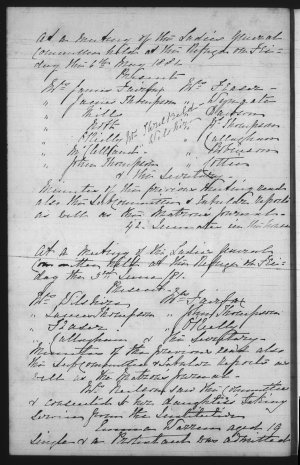 At a meeting of the Ladies General
Committee held at the Refuge on Fri-
day the 6th May 1881
Present
Mrs James Fairfax Mrs Fraser
" James Thompson " Wyngate
" Mills
" " J Thompson
" " Callaghan
" " Robinson
" John Thompson " Cotter
& the Secretary
Minutes of the previous Meeting read
also the Sub Committee & Reports
as well as the Matrons journal
42 Inmates in the house
At a meeting of the Ladies General
Committee held at the Refuge on Fri-
day the 3rd June /81
Present
Mrs Mrs Fairfax
" James Thompson " John Thompson
" Fraser " O'Reilly
" Callaghan & the Secretary
Minutes of the previous read also
the Sub Committee Reports as
well as the Matrons journal
Mrs saw the Committee
& consented to her daughters taking
service from the Institution
Emma Warren aged 19
Single & a Protestant was admitted